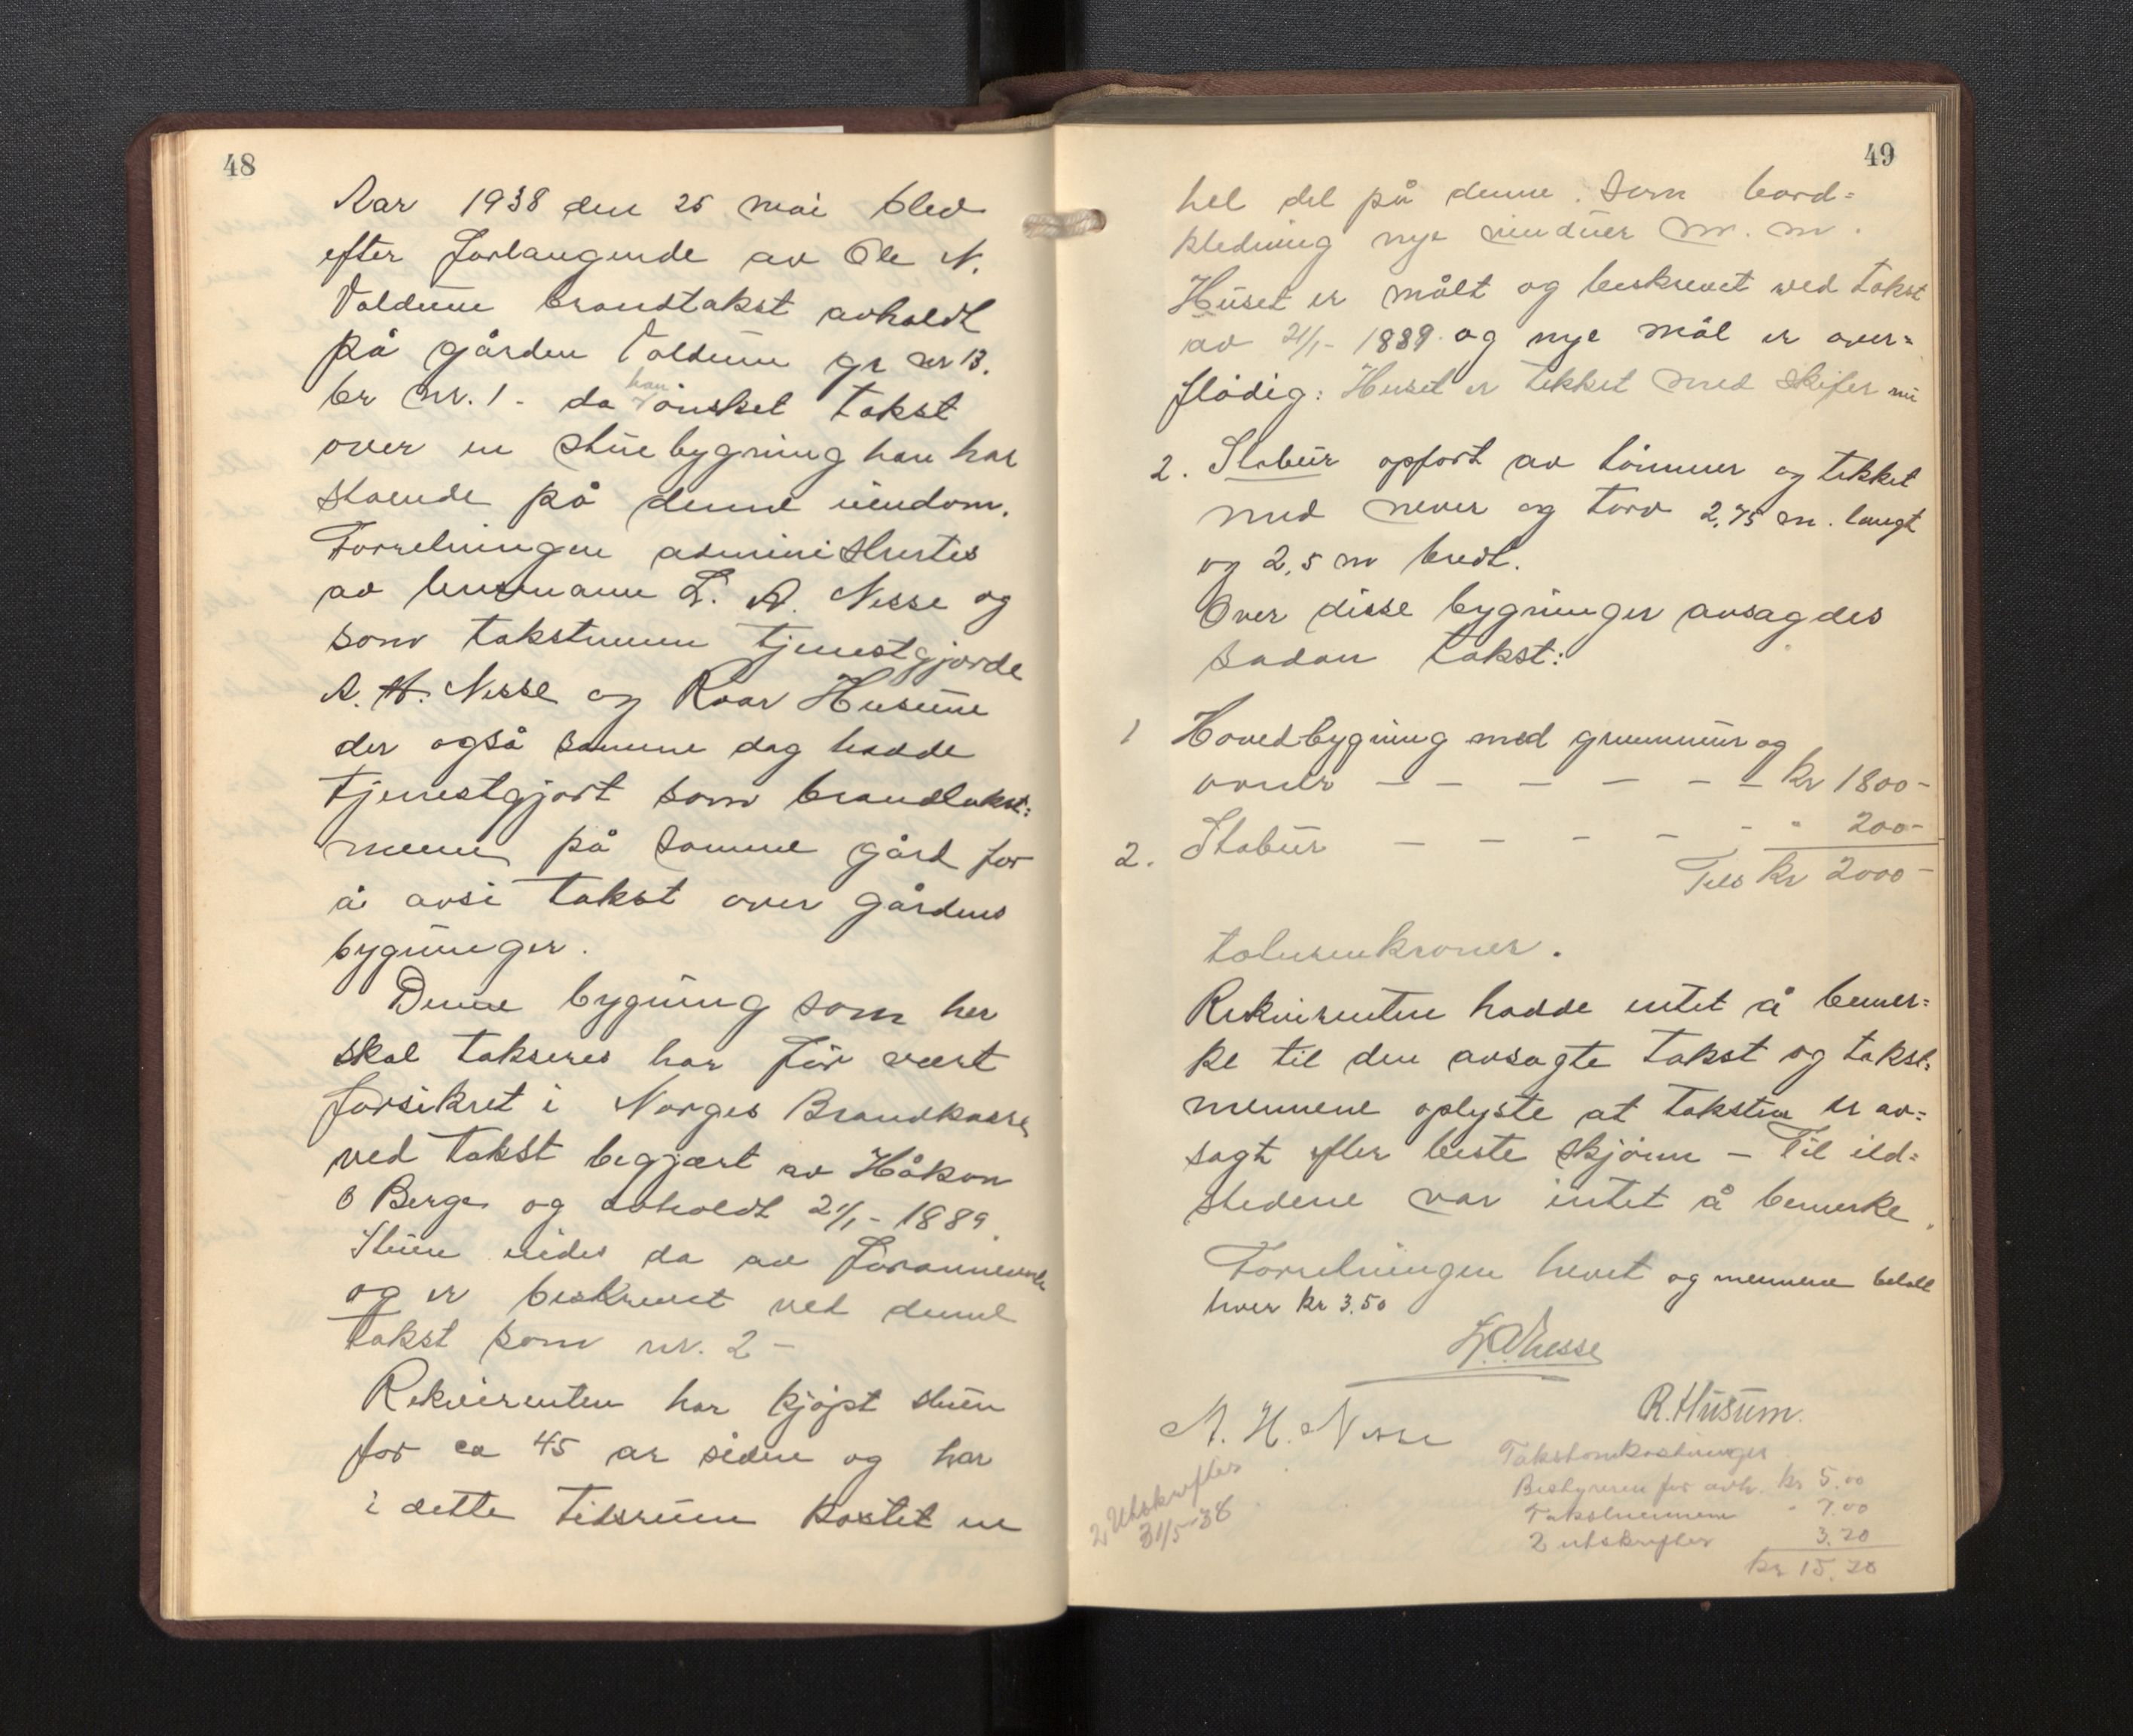 48
Aar 1938 den 25 mai blev
efter forlangende av Ole N.
Voldum brandtakst avholdt
på gården Voldum gr nr 13.
br nr. 1 - da han ønsket takst
over en stuebygning han har
stående på denne eiendom.
Forretningen administrertes
av lensmann L. A. Nesse og
som takstmenn tjenestgjorde
A. H. Nesse og Roar Husum
der også samme dag hadde
tjenestgjort som brandtakst=
menn på samme gård for
å avsi takst over gårdens
bygninger.
Denne bygning som her
skal takseres har før vært
forsikret i Norges Brandkasse
ved takst begjært av Håkon
O Berge og avholdt 21/1 - 1889.
Stuen eides da av forannevnte
og er beskrevet ved denne
takst som nr. 2 -
Rekvirenten har kjøpt stuen
for ca 45 år siden og har
i dette tidsrum kostet en
49
hel del på denne. som bord=
kledning nye vinduer m. m.
Huset er målt og beskrevet ved takst
av 21/1 - 1889 og nye mål er over=
flødig: Huset er tekket med skifer nu
2. Stabur opført av tømmer og tekket
med never og torv 2,75 m. langt
og 2,5 m bredt.
Over disse bygninger avsagdes
sådan takst:
1 Hovedbygning med grunnmur og
ovner — — — — — — kr 1800 -
2. Stabur — — — — - " 200 -
Tils kr 2000 -
totusenkroner.
Rekvirenten hadde intet å bemer=
ke til den avsagte takst og takst=
mennene oplyste at taksten er av=
sagt efter beste skjønn — Til ild=
stedene var intet å bemerke.
Forretningen hevet og mennene betalt
hver kr 3.50
L. A. Nesse
A. H. Nesse
R. Husum.
2 Utskrifter
31/5 - 38
Takstomkostninger
Bestyreren for avh. kr 5.00
Takstmennene " 7.00
2 utskrifter 3.20
kr 15.20